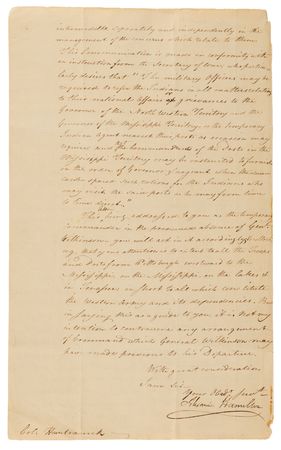 intermeddle separately and independently in the
management of the concerns which relate to them
This Communication is made in conformity with
an instruction from the Secretary of war who particu-
larly desires that "The military Officers may be
required to refer the Indians in all matters relating
to their national affairs or grievances to the
Governor of the North Western Territory and the
Governor of the Mississippi Territory, or the temporary
Indian Agent nearest their posts as occasion may
require and the Commandants of the Posts in the
Mississippi Territory may be instructed to furnish
on the order of Governor Sargent when the same
can be spared such rations for the Indians who
may visit the same posts as he may from time
to time direct."
This letter being addressed to you as the temporary
Commander in the presumed absence of General
Wilkinson, you will act in it accordingly
that your attention is to extend to the Troops
and Posts from Pittsburgh westward to the
Mississippi, on the Mississippi, on the Lakes &
in Tenassee in short to all which constitute
the Western Army and its dependencies. But
in saying this as a guide to you it is not my
intention to contravene any arrangement
of Command which General Wilkinson may
have made previous to his Departure.
With great consideration
I am Sir
Your Obedt Servt
Alexander Hamilton
Col. Hamtramck